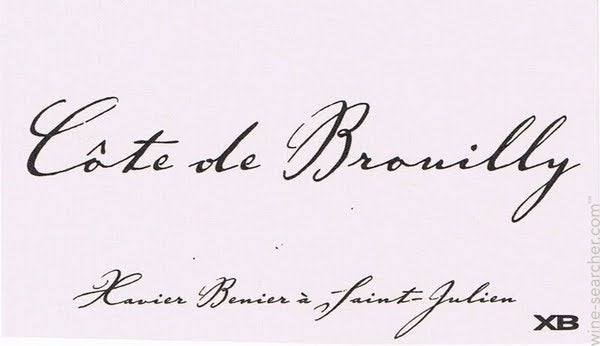 Côte de Brouilly
Xavier Benier à Saint-Julien
XB
wine-searcher.com™